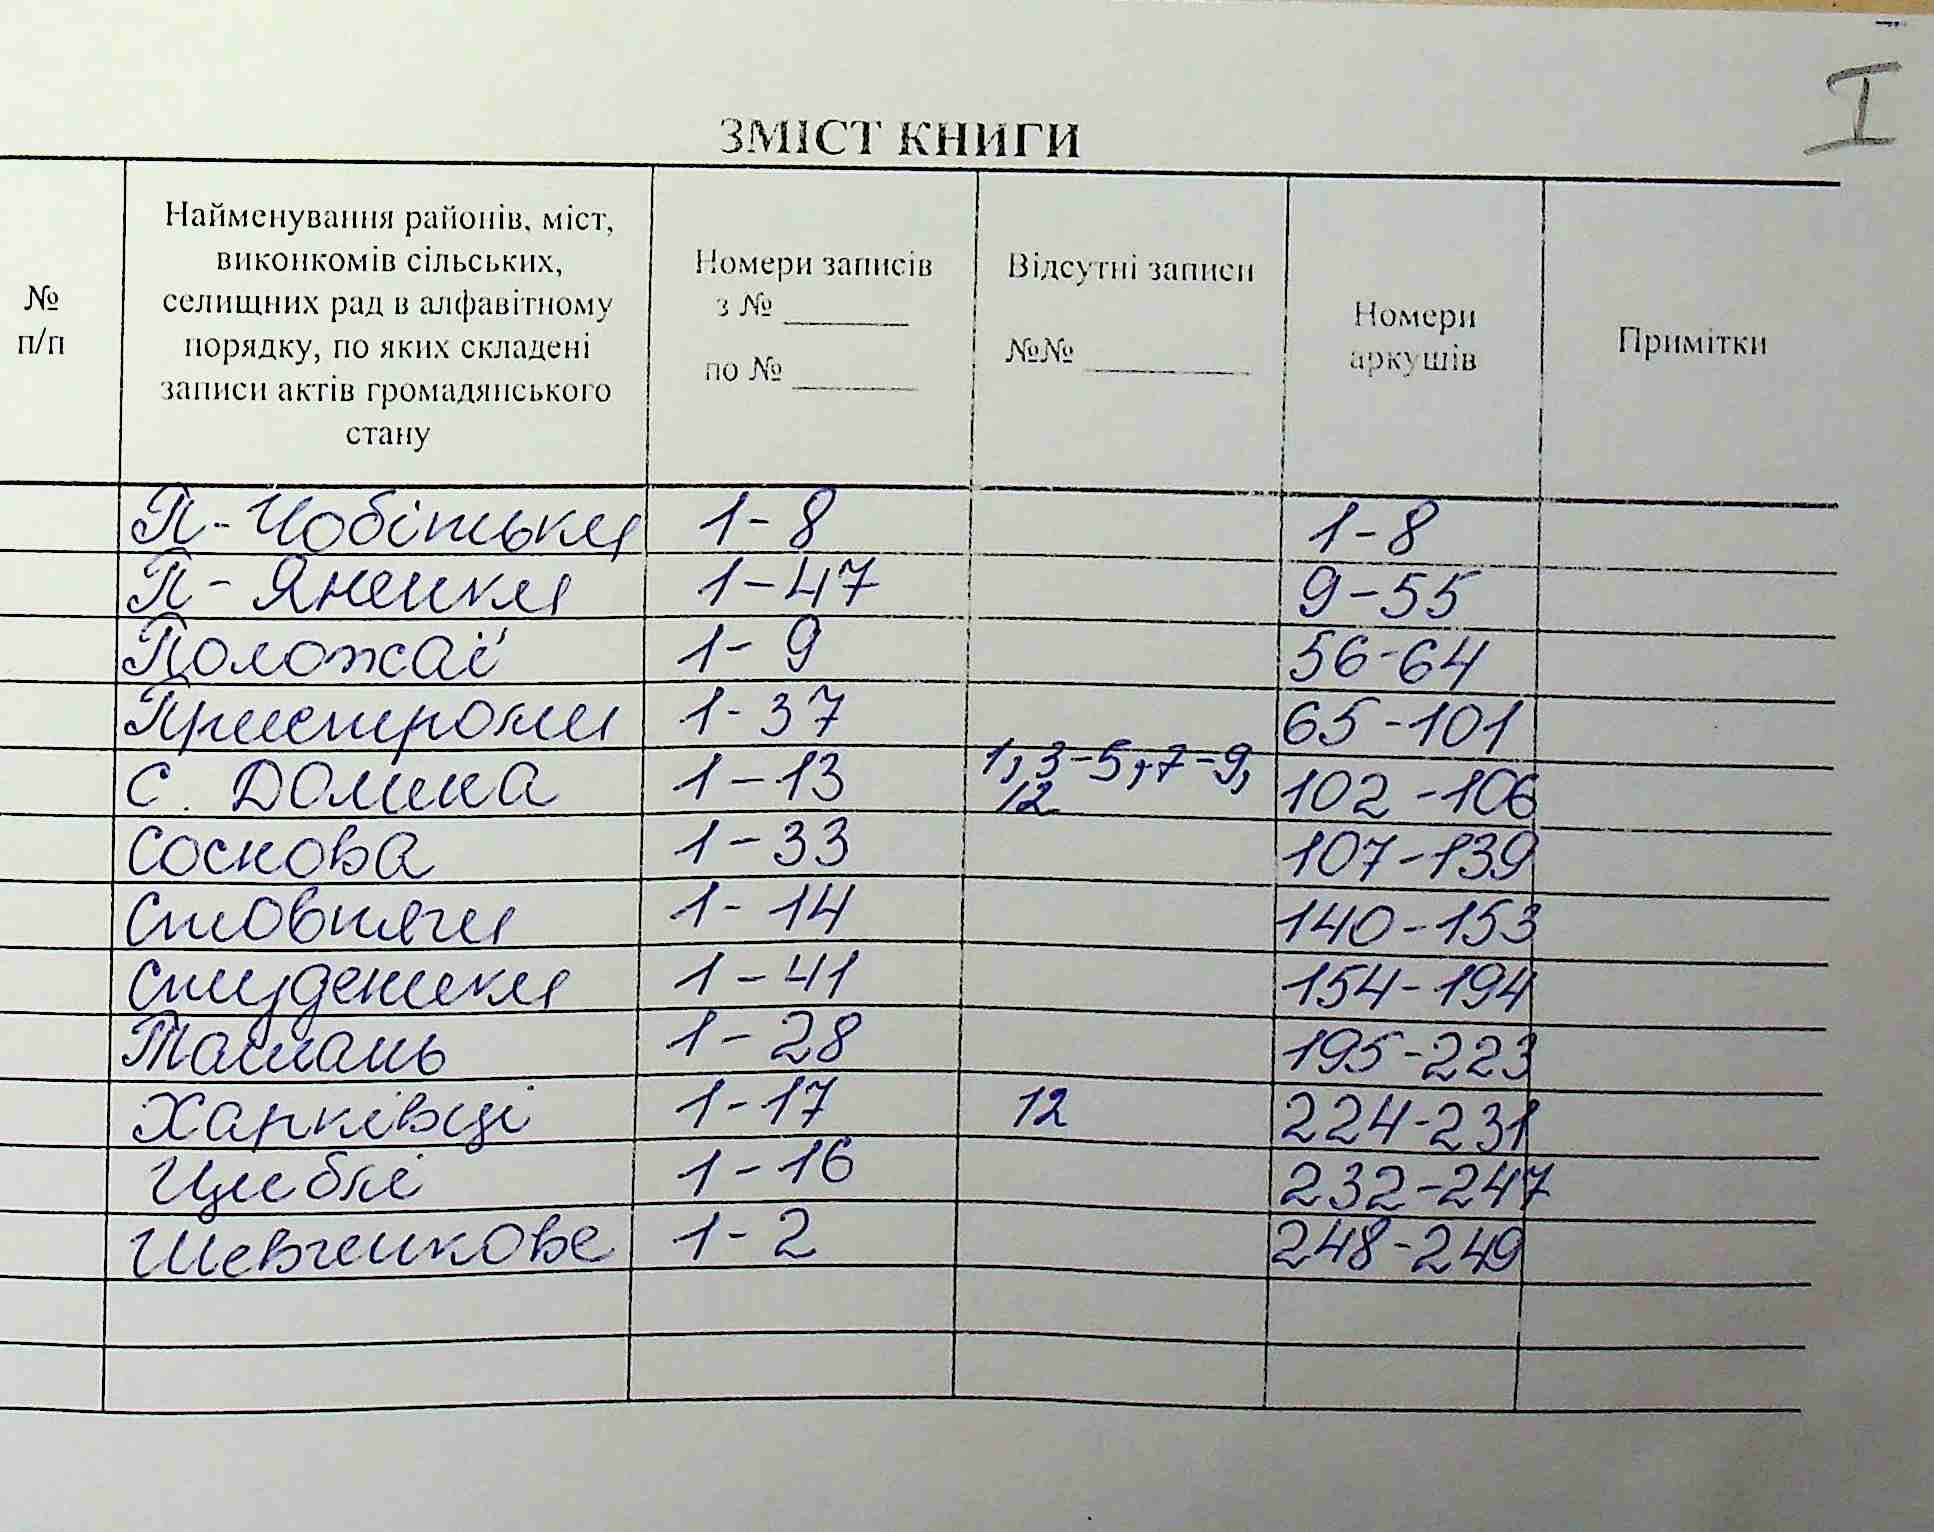 I
ЗМІСТ КНИГИ
№
п/п
Найменування районів, міст,
виконкомів сільських,
селищних рад в алфавітному
порядку, по яких складені
записи актів громадянського
стану
Номери записів
з № ______
по № ______
Відсутні записи
№№ ______
Номери
аркушів
Примітки
П-Чобітьки 1-8 1-8
П-Яненки 1-47 9-55
Положаї 1-9 56-64
Пристроми 1-37 65-101
С. Долина 1-13 1, 3-5, 7-9, 12 102-106
Соснова 1-33 107-139
Стовпяги 1-14 140-153
Студеники 1-41 154-194
Ташань 1-28 195-223
Харківці 1-17 12 224-231
Циблі 1-16 232-247
Шевченкове 1-2 248-249